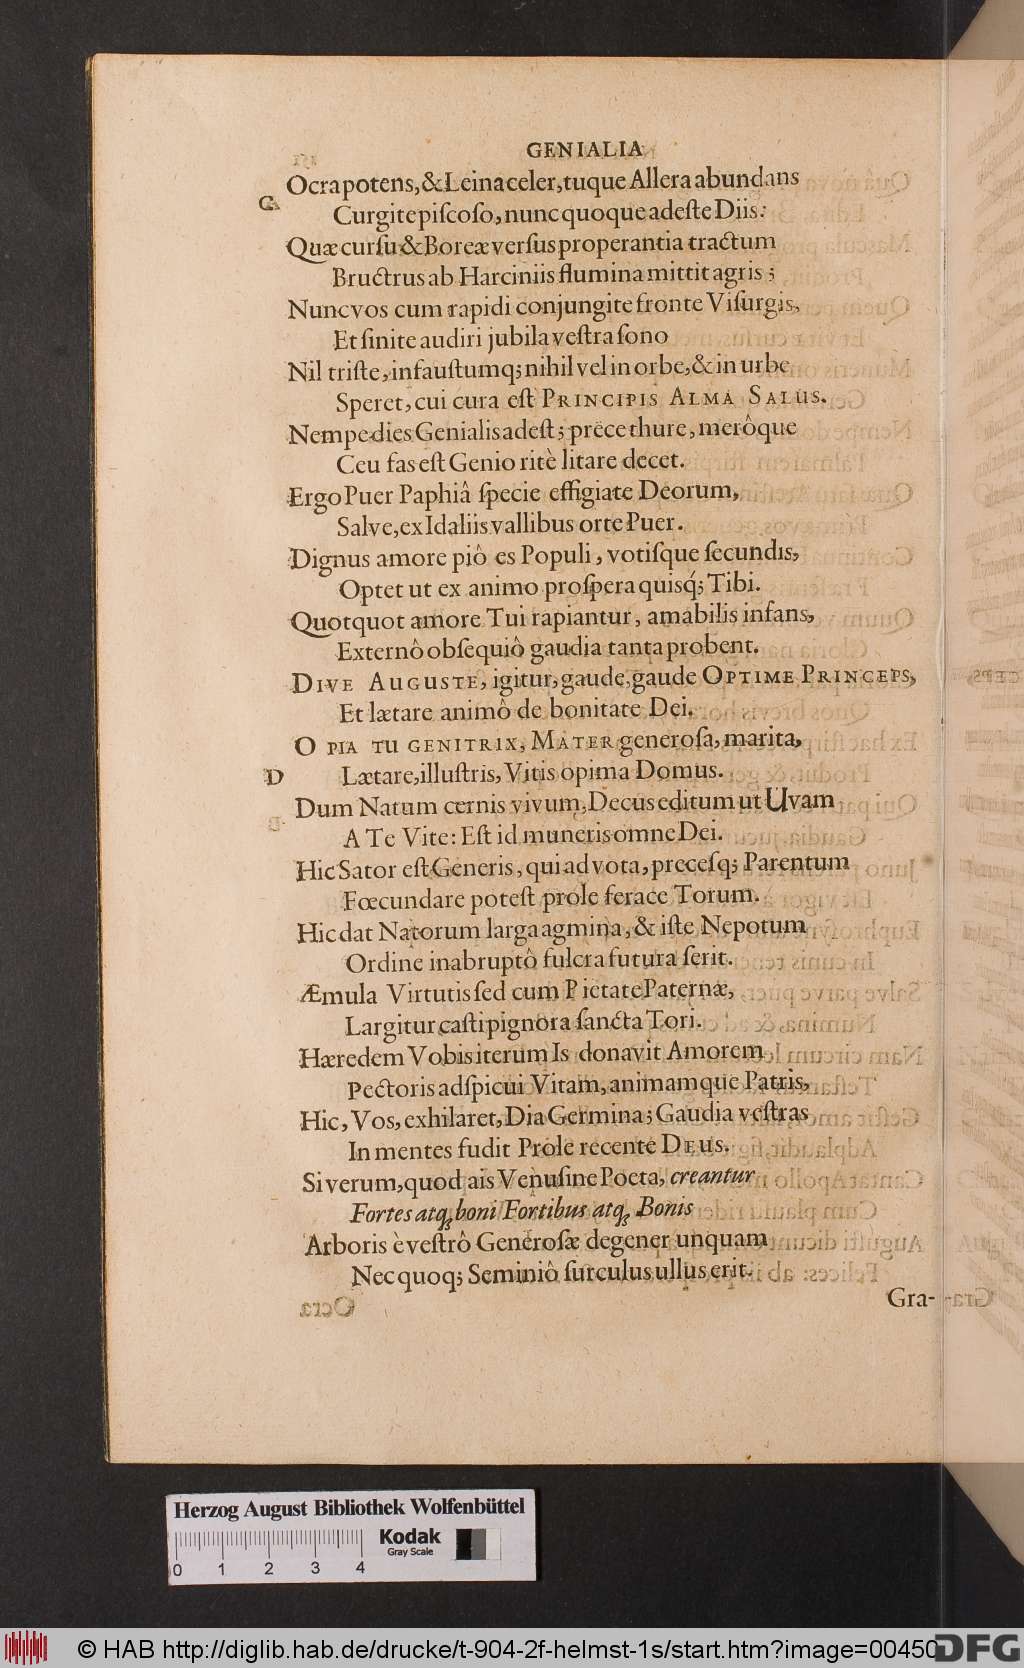 GENIALIA
Ocra potens, & Leina celer, tuque Allera abundans
G
Curgite piſcoſo, nunc quoque adeſte Diis:
Quæ curſu & Boreæ verſus properantia tractum
Bructrus ab Harciniis flumina mittit agris;
Nunc vos cum rapidi conjungite fronte Viſurgis,
Et ſinite audiri jubila veſtra ſono
Nil triſte, infauſtumq; nihil vel in orbe, & in urbe
Speret, cui cura eſt PRINCIPIS ALMA SALUS.
Nempe dies Genialis adeſt; prece thure, merôque
Ceu fas eſt Genio ritè litare decet.
Ergo Puer Paphiâ ſpecie effigiate Deorum,
Salve, ex Idaliis vallibus orte Puer.
Dignus amore piô es Populi, votiſque ſecundis,
Optet ut ex animo proſpera quisq́; Tibi.
Quotquot amore Tui rapiantur, amabilis infans,
Externô obſequiô gaudia tanta probent.
DIVE AUGUSTE, igitur, gaude, gaude OPTIME PRINCEPS,
Et lætare animô de bonitate Dei.
O PIA TU GENITRIX, MATER generoſa, marita,
D
Lætare, illuſtris, Vitis opima Domus.
Dum Natum cernis vivum, Decus editum ut Uvam
A Te Vite: Eſt id muneris omne Dei.
Hic Sator eſt Generis, qui ad vota, preceſq; Parentum
Fœcundare poteſt prole ferace Torum.
Hic dat Natorum larga agmina, & iſte Nepotum
Ordine inabruptô fulcra futura ſerit.
Æmula Virtutis ſed cum Pietate Paternæ,
Largitur caſti pignora ſancta Tori.
Hæredem Vobis iterum Is donavit Amorem
Pectoris adſpicui Vitam, animamque Patris,
Hic, Vos, exhilaret, Dia Germina; Gaudia veſtras
In mentes fudit Prole recente DEUS.
Si verum, quod ais Venuſine Poeta, creantur
Fortes atq; boni Fortibus atq; Bonis
Arboris è veſtrô Generoſæ degener unquam
Nec quoq; Seminiô ſurculus ullus erit.
Gra-
Herzog August Bibliothek Wolfenbüttel
Kodak
Gray Scale
0 1 2 3 4
© HAB http://diglib.hab.de/drucke/t-904-2f-helmst-1s/start.htm?image=00450
DFG